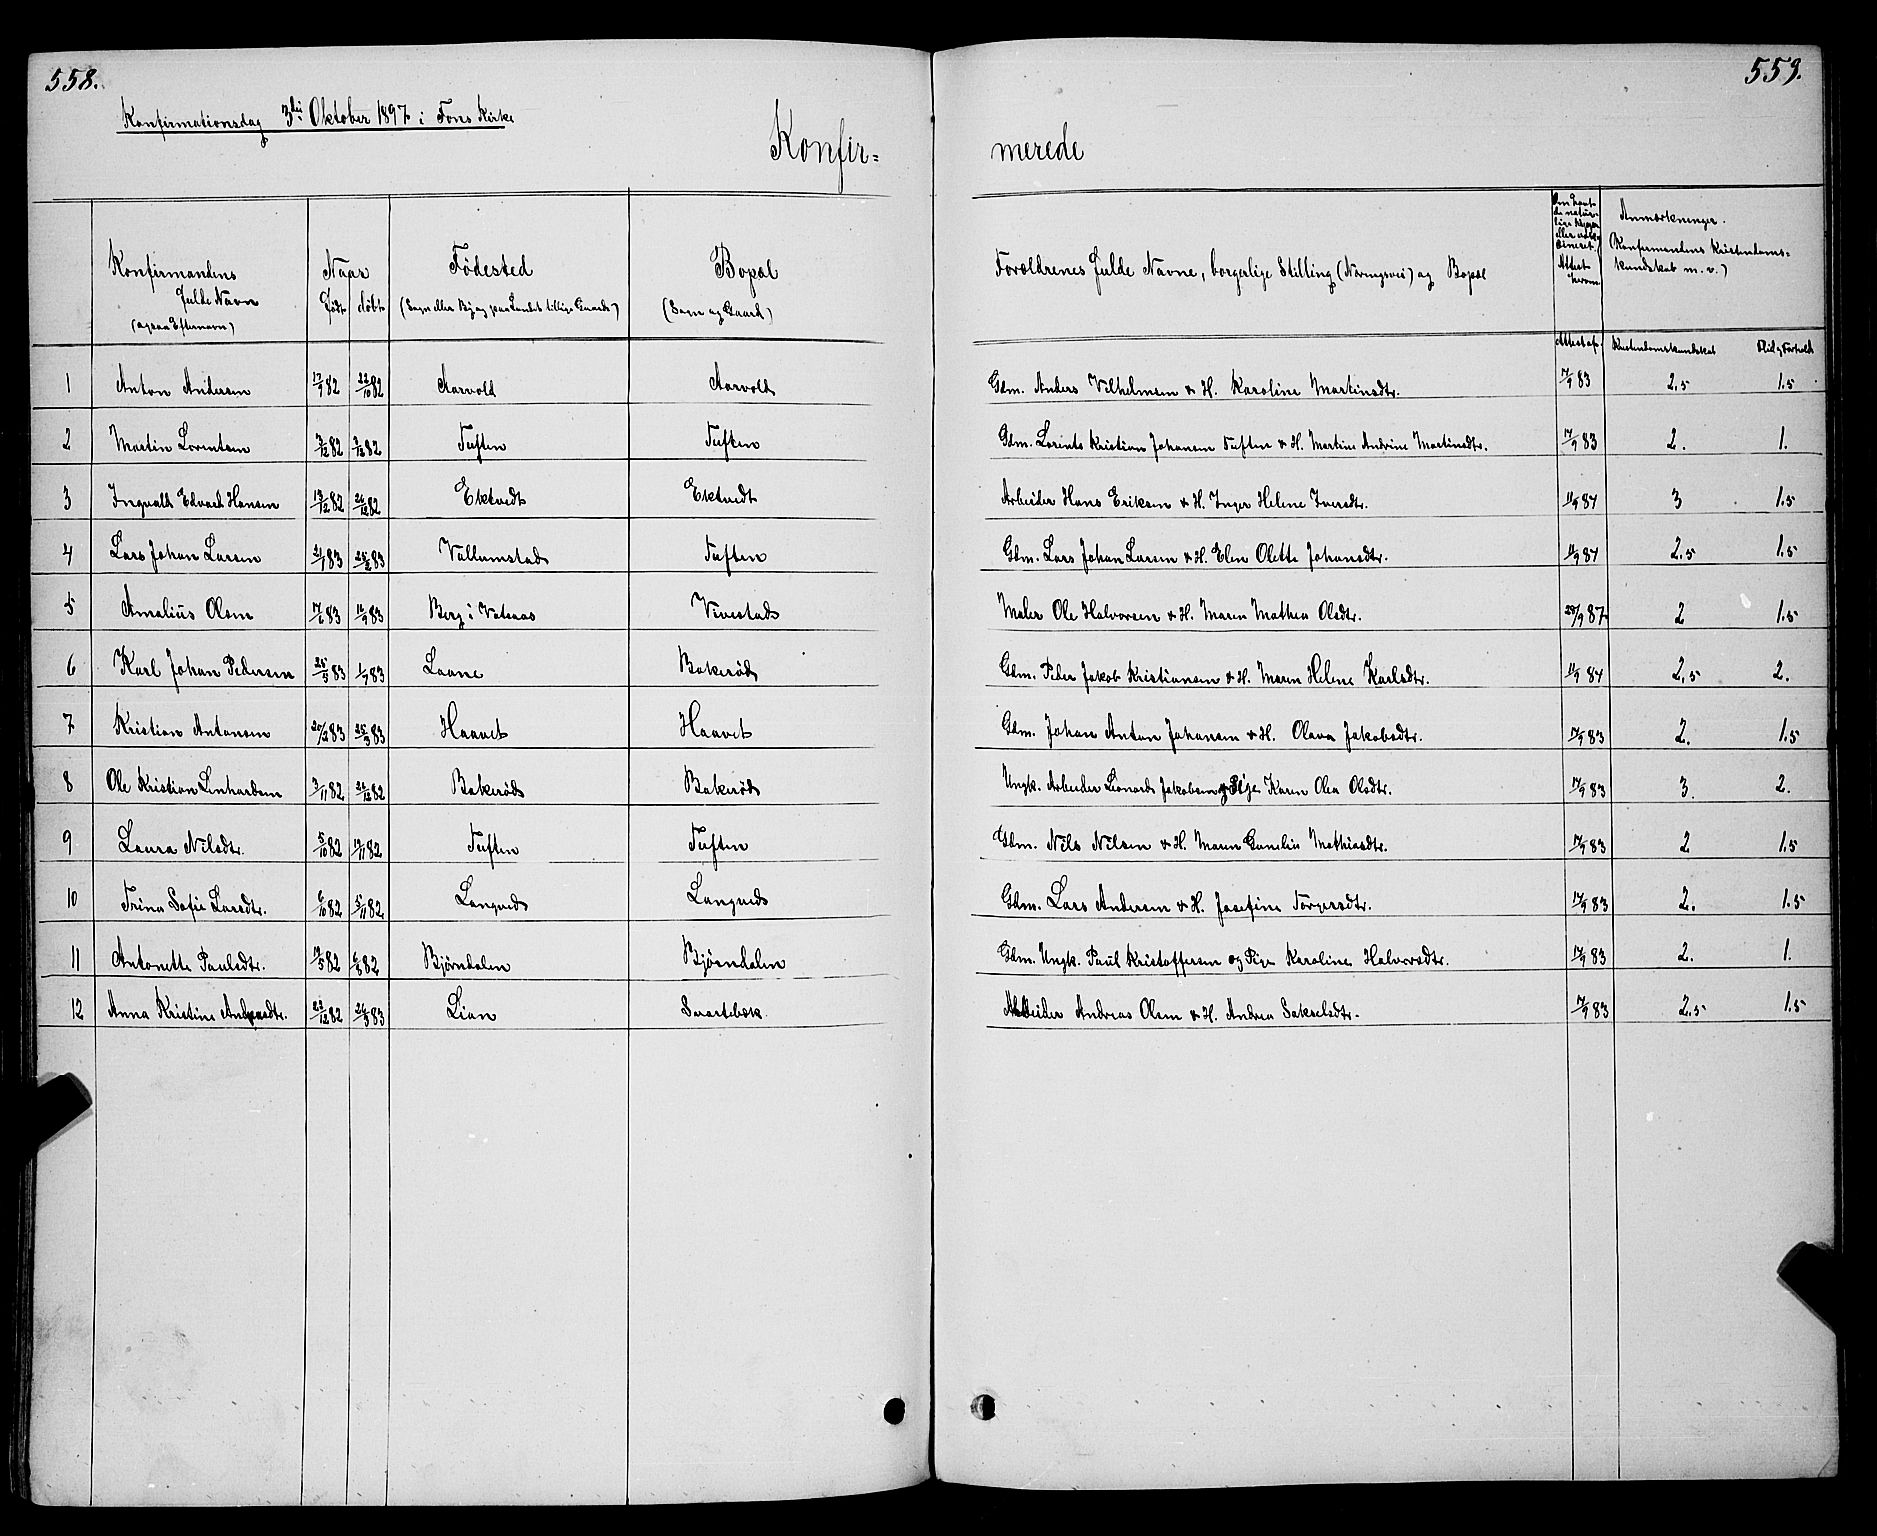 558.
559.
Konfirmationsdag 3die Oktober 1897 i Fons Kirke
Konfir=
merede
Konfirmandens fulde Navn (ogsaa Efternavn)
Naar
Født
døbt
Fødested
(Sogn eller By og paa Landet tillige Gaards)
Bopæl
(Sogn og Gaard)
Forældrenes fulde Navne, borgerlige Stilling (Næringsvei) og Bopæl
Anmærkninger.
(Konfirmandens Kristendoms-
kundskab m. v.)
Attest af
Kristendomskundskab
Flid og Forhold
1 Anton Andersen 17/9 82 22/10 82 Aarvold Aarvold Gdm. Anders Vilhelmsen & H. Karoline Martinsdtr. 17/9 83 2,5 1.5
2 Martin Lorentsen 3/12 82 Tuften Tuften Gdm. Lorents Kristian Johansen Tuften & H. Martine Andrine Martinsdtr. 17/9 83 2. 1.
3 Ingvald Edvard Hansen 13/12 82 26/12 82 Ektvedt Ektvedt Arbeider Hans Eriksen & H. Inger Helene Iversdtr. 11/9 84 3 1.5
4 Lars Johan Larsen 21/1 83 25/2 83 Vallumstad Tuften Gdm. Lars Johan Larsen & H. Elen Olette Johansdtr. 11/9 84 2,5 1.5
5 Amalius Olsen 17/6 83 16/9 83 Berg i Vataas Vivestad Maler Ole Halvorsen & H. Maren Mathea Olsdtr. 28/9 87 2 1.5
6 Karl Johan Pedersen 25/5 83 1/7 83 Laane Bakerød Gdm. Peder Jakob Kristiansen & H. Maren Helene Karlsdtr. 11/9 84 2,5 2.
7 Kristian Antonsen 20/2 83 25/3 83 Haavet Haavet Gdm. Johan Anton Johansen & H. Olava Jakobsdtr. 17/9 83 2. 1.5
8 Ole Kristian Linhardsen 3/11 82 26/12 82 Bakerød Bakerød Ungk. Arbeider Leonard Jakobsen og Pige Karen Olea Olsdtr. 17/9 83 3. 2.
9 Laura Nilsdtr. 5/10 82 19/11 82 Tuften Tuften Gdm. Nils Nilsen & H. Maren Gunelia Mathiasdtr. 17/9 83 2 1.5
10 Trina Sofie Larsdtr. 6/10 82 5/11 82 Langved Langved Gdm. Lars Andersen & H. Josefine Torgersdtr. 17/9 83 2. 1.5
11 Antonette Paulsdtr. 19/5 82 6/8 82 Bjørndalen Bjørndalen Gdm. Ungk. Paul Kristoffersen og Pige Karoline Halvorsdtr. 17/9 83 2. 1.
12 Anna Kristine Andreasdtr. 22/12 82 26/3 83 Lian Svartebæk Arbeider Andreas Olsen & H. Andrea Sakselsdtr. 17/9 83 2,5 1.5